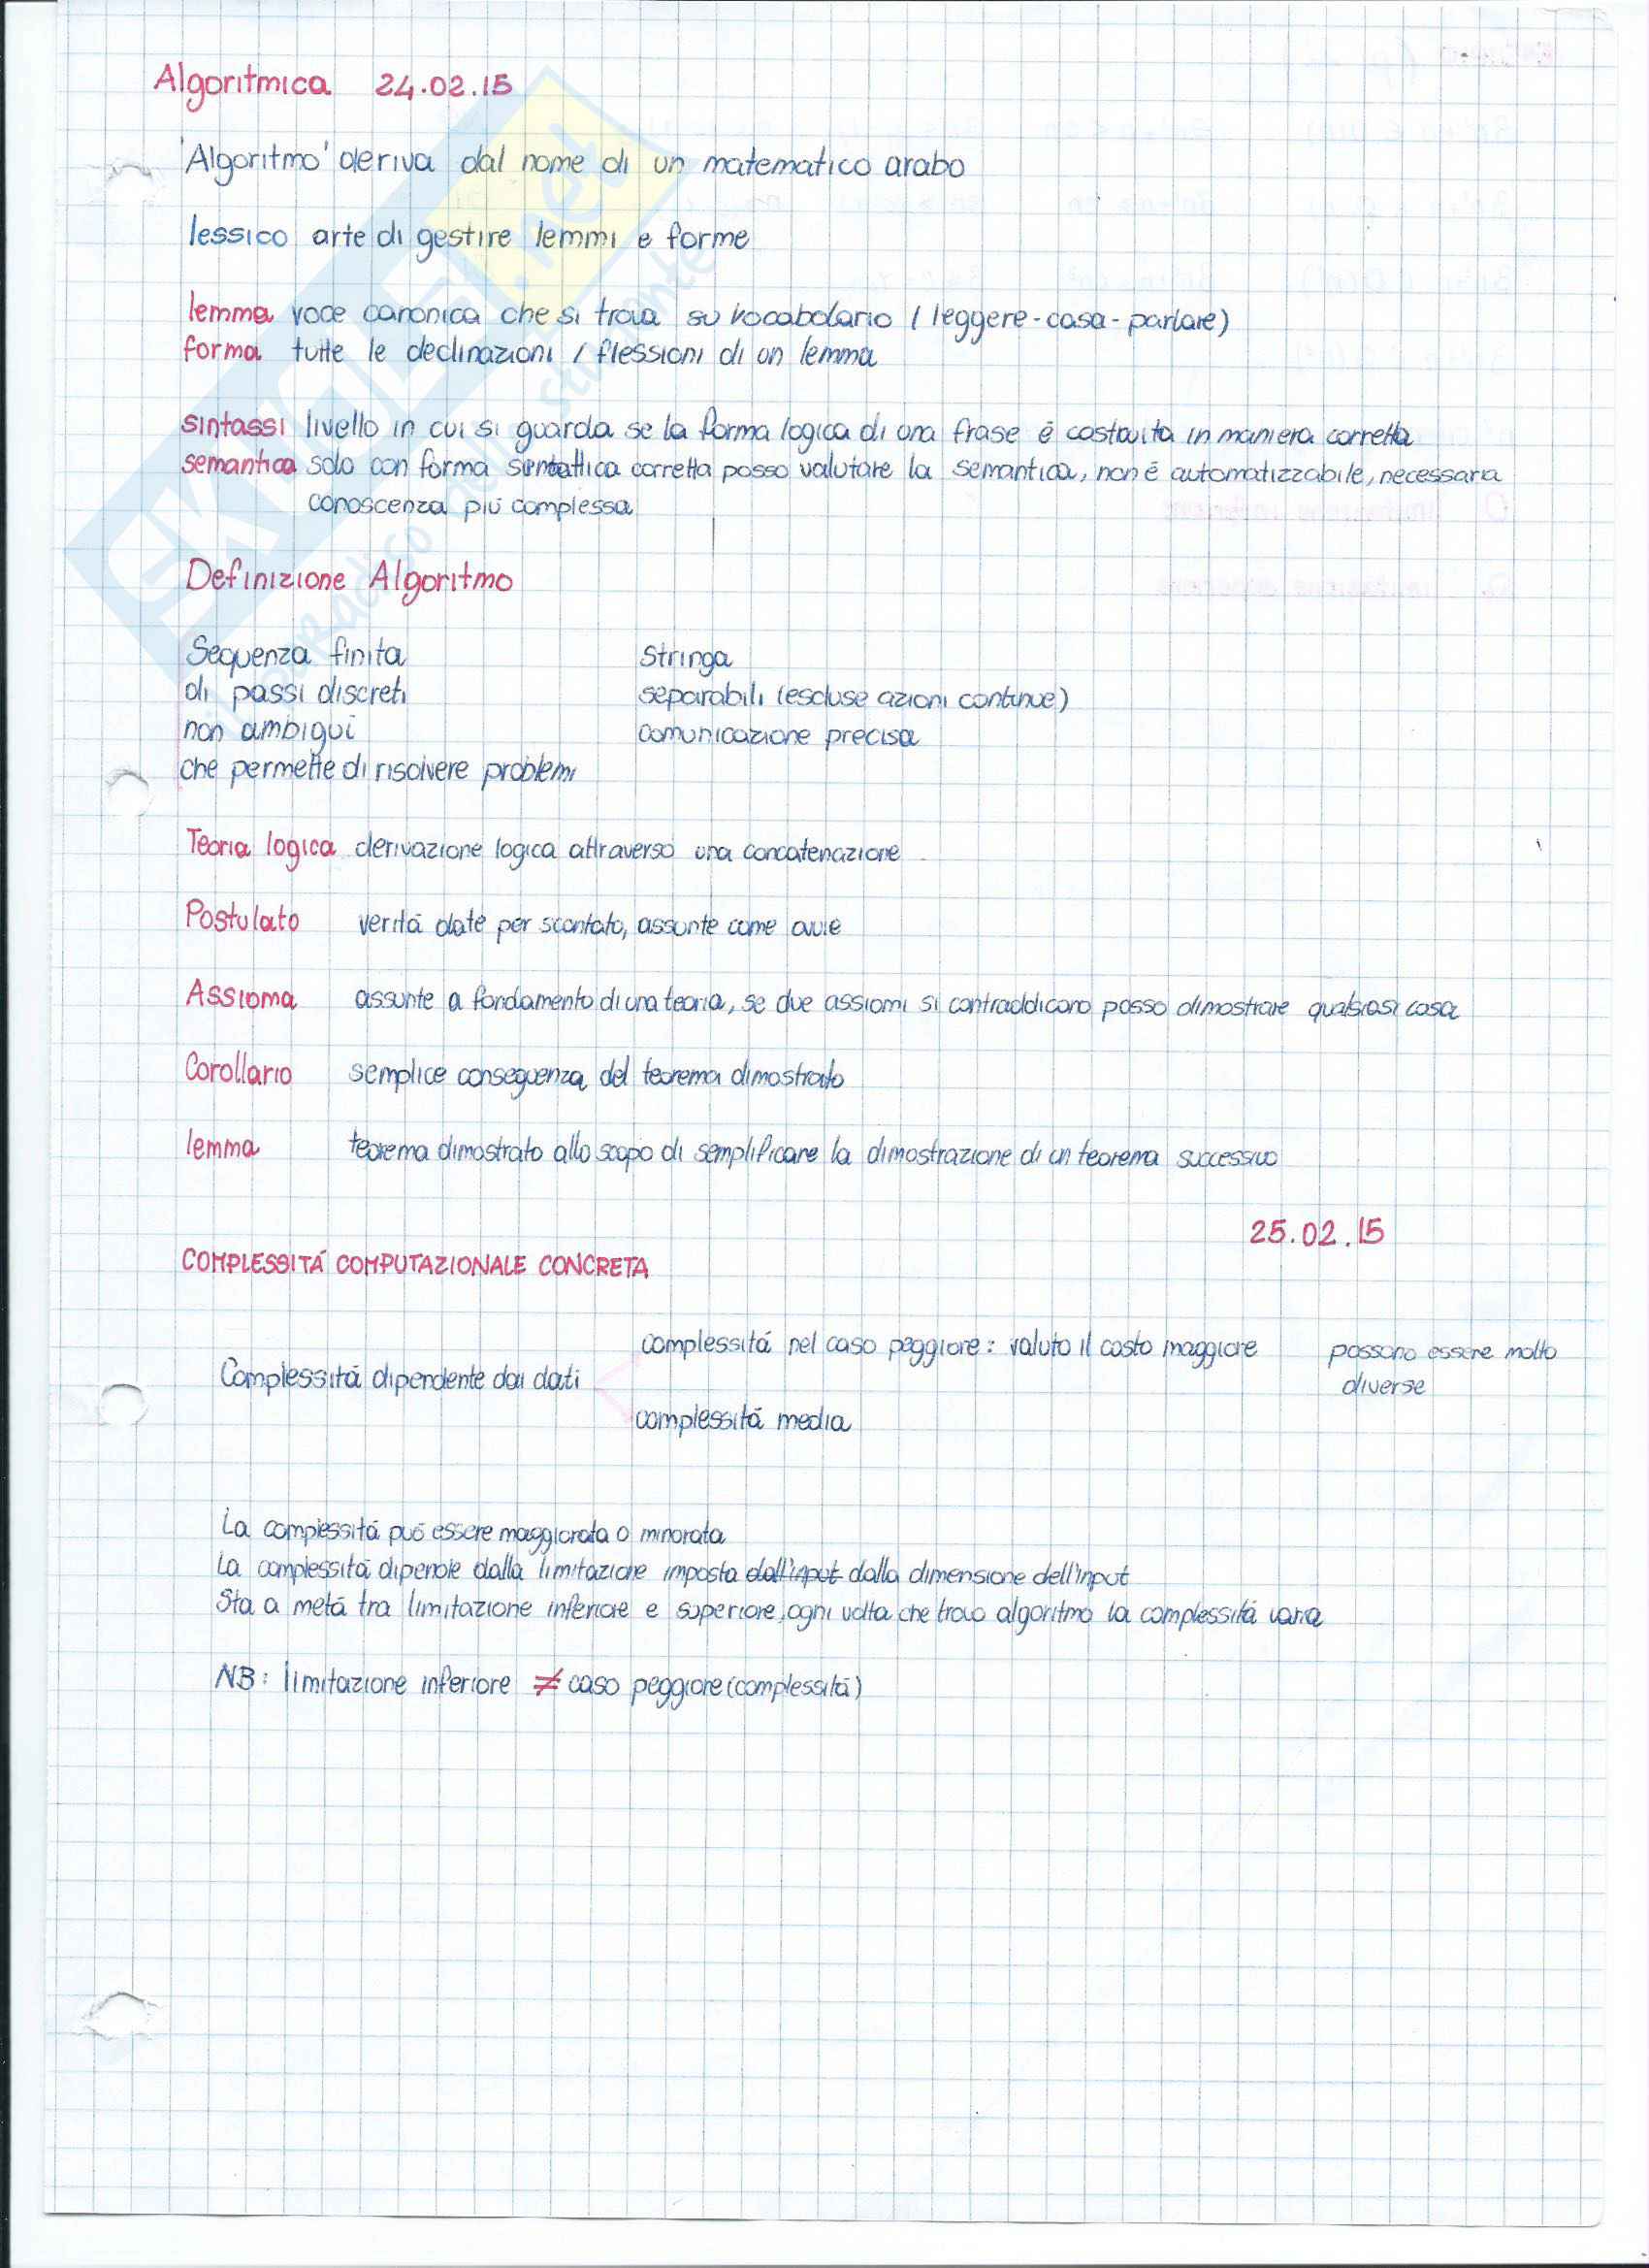 Algoritmica 24.02.15
'Algoritmo' deriva dal nome di un matematico arabo
lessico arte di gestire lemmi e forme
lemma voce canonica che si trova su vocabolario (leggere-casa-parlare)
forma tutte le declinazioni / flessioni di un lemma
sintassi livello in cui si guarda se la forma logica di una frase é costruita in maniera corretta
semantica solo con forma sintattica corretta posso valutare la semantica, non é automatizzabile, necessaria
conoscenza piú complessa
Definizione Algoritmo
Sequenza finita Stringa
di passi discreti separabili (escluse azioni continue)
non ambigui comunicazione precisa
che permette di risolvere problemi
Teoria logica derivazione logica attraverso una concatenazione
Postulato veritá date per scontato, assunte come ovvie
Assioma assunte a fondamento di una teoria, se due assiomi si contraddicono posso dimostrare qualsiasi cosa
Corollario semplice conseguenza del teorema dimostrato
lemma teorema dimostrato allo scopo di semplificare la dimostrazione di un teorema successivo
25.02.15
COMPLESSITÁ COMPUTAZIONALE CONCRETA
complessitá nel caso peggiore: valuto il costo maggiore possono essere molto
Complessitá dipendente dai dati diverse
complessitá media
La complessitá puó essere maggiorata o minorata
La complessitá dipende dalla limitazione imposta dall'input dalla dimensione dell'input
Sta a metá tra limitazione inferiore e superiore, ogni volta che trovo algoritmo la complessitá varia
NB: limitazione inferiore ≠ caso peggiore (complessitá)